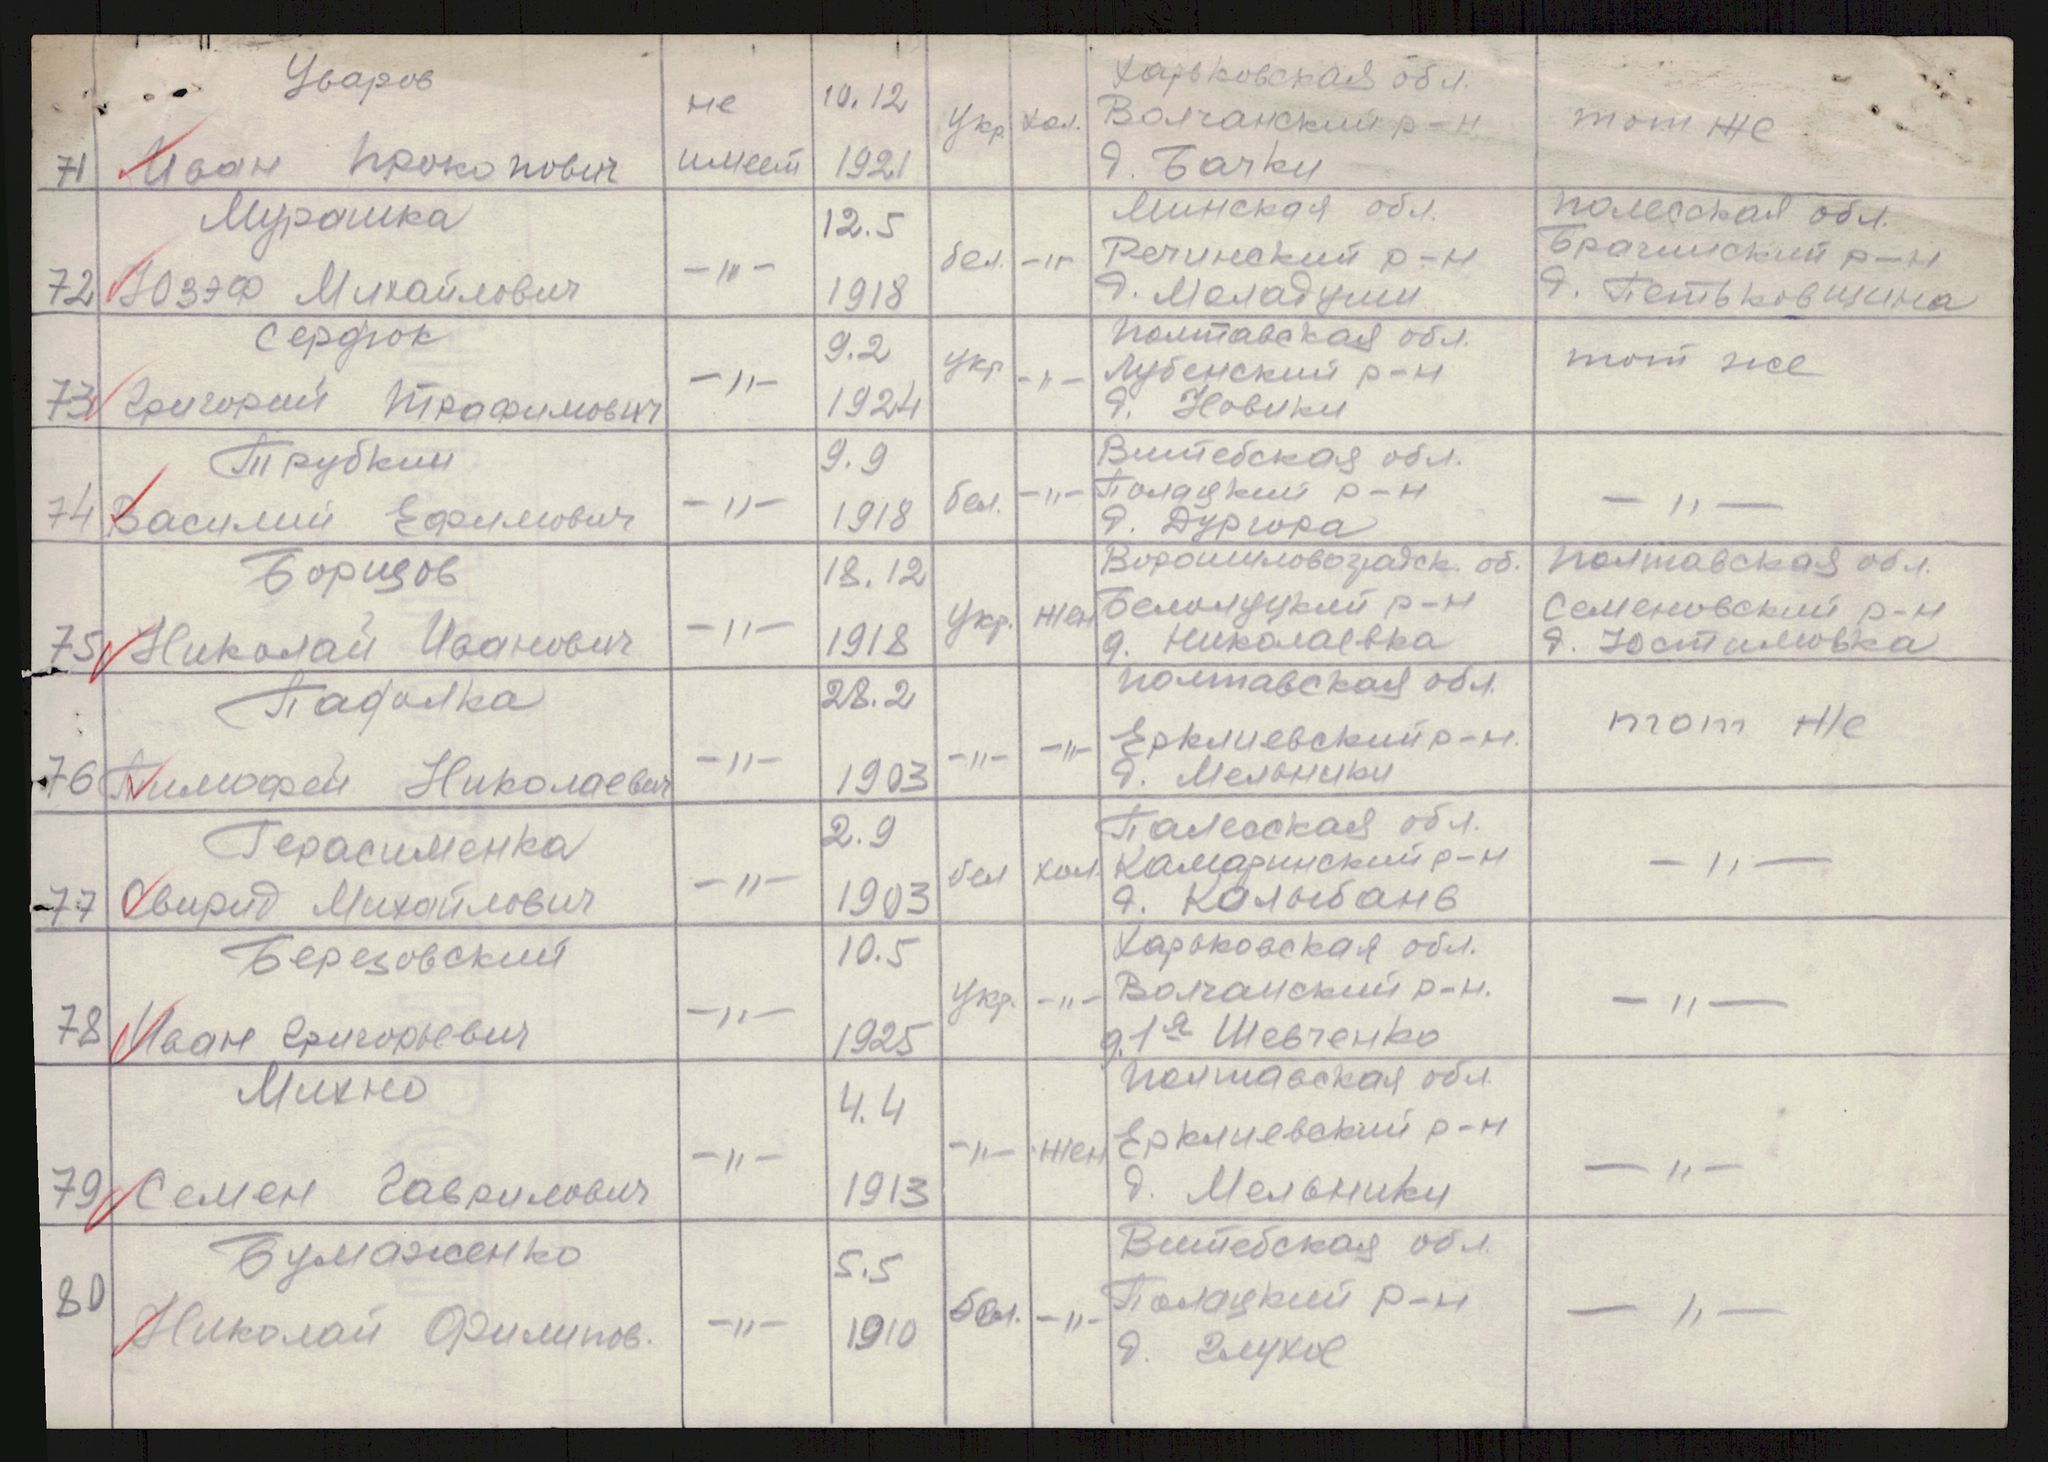 Уваров
71 Иван Прокопович
не
имеет
10.12
1921
Укр. хол.
Харьковская обл.
Волчанский р-н
д. Бачки
тот же
Мурашка
72 Юзэф Михайлович
-"-
12.5
1918
бел. -"-
Минская обл.
Речинский р-н
д. Меладуми
Полесская обл.
Брагинский р-н
д. Петьковщина
Сердюк
73 Григорий Трафимович
-"-
9.2
1924
укр -"-
Полтавская обл.
Лубенский р-н
д. Новики
тот же
Трубкин
74 Василий Ефимович
-"-
9.9
1918
бел. -"-
Витебская обл.
Полацкий р-н
д. Дургора
-"-
Борщов
75 Николай Иванович
-"-
18.12
1918
Укр. жен
Ворошиловоградск. об.
Белолуцкий р-н
д. Николаевка
Полтавская обл.
Семеновский р-н
д. Юстимовка
Падолка
76 Тимофей Николаевич
-"-
28.2
1903
-"- -"-
Полтавская обл.
Ерклиевский р-н.
д. Мельники
тот же
Герасименка
77 Свирид Михайлович
-"-
2.9
1903
бел хол.
Палесская обл.
Камаринский р-н
д. Калыбань
-"-
Березовский
78 Иван Григорьевич
-"-
10.5
1925
Укр. -"-
Харьковская обл.
Волчанский р-н.
д. 1я Шевченко
-"-
Михно
79 Семен Гаврилович
-"-
4.4
1913
-"- жен
Полтавская обл.
Ерклиевский р-н
д. Мельники
-"-
Бумаженко
80 Николай Филипов.
-"-
5.5
1910
бел. -"-
Витебская обл.
Полацкий р-н
д. Глухое
-"-